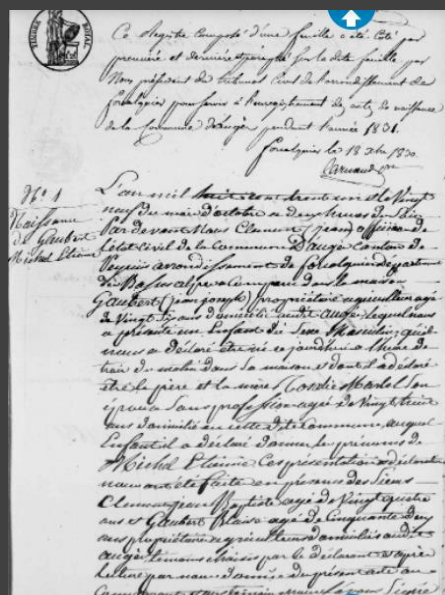 TIMBRE ROYAL
Ce Registre composé d'une feuille a été coté par
première et dernière et paraphé sur la dite feuille par
Nous président du tribunal civil de l'arrondissement de
forcalquier pour servir à l'enregistrement des actes de naissance
de la Commune d'augès pendant l'année 1831.
forcalquier le 18 Xbre 1830.
N° 1
Naissance
de Gaubert
Michel Etienne
L'an mil huit cent trente un et le Vingt
neuf du mois d'octobre a deux heures du
Par devant Nous Clement (jean) officier de
l'état Civil de la Commune D'augès canton de
Peyruis arrondissement de forcalquier département
des Basses alpes a Comparu dans la maison
Gaubert (jean joseph) propriétaire agriculteur agé
de Vingt ans domicilié audit augès lequel nous
a présenté un Enfant du Sexe Masculin qu'il
nous a déclaré être né ce jourd'hui a l'heure de
trois du matin dans sa maison et dont il a déclaré
être le père et la mère Martel Son
épouse Sans profession agée de Vingt huit
ans domiciliée en cette dite Commune auquel
Enfant il a déclaré donner les prénoms de
Michel Etienne Ces présentation et déclaration
nous ont été faite en présence des Sieurs
Clement jean Baptiste agé de Vingt quatre
ans et Gaubert Blaise agé de Cinquante deux
ans propriétaires agriculteurs domiciliés audit
augès temoins choisis par le déclarant et après
lecture par nous donnée du présent acte au